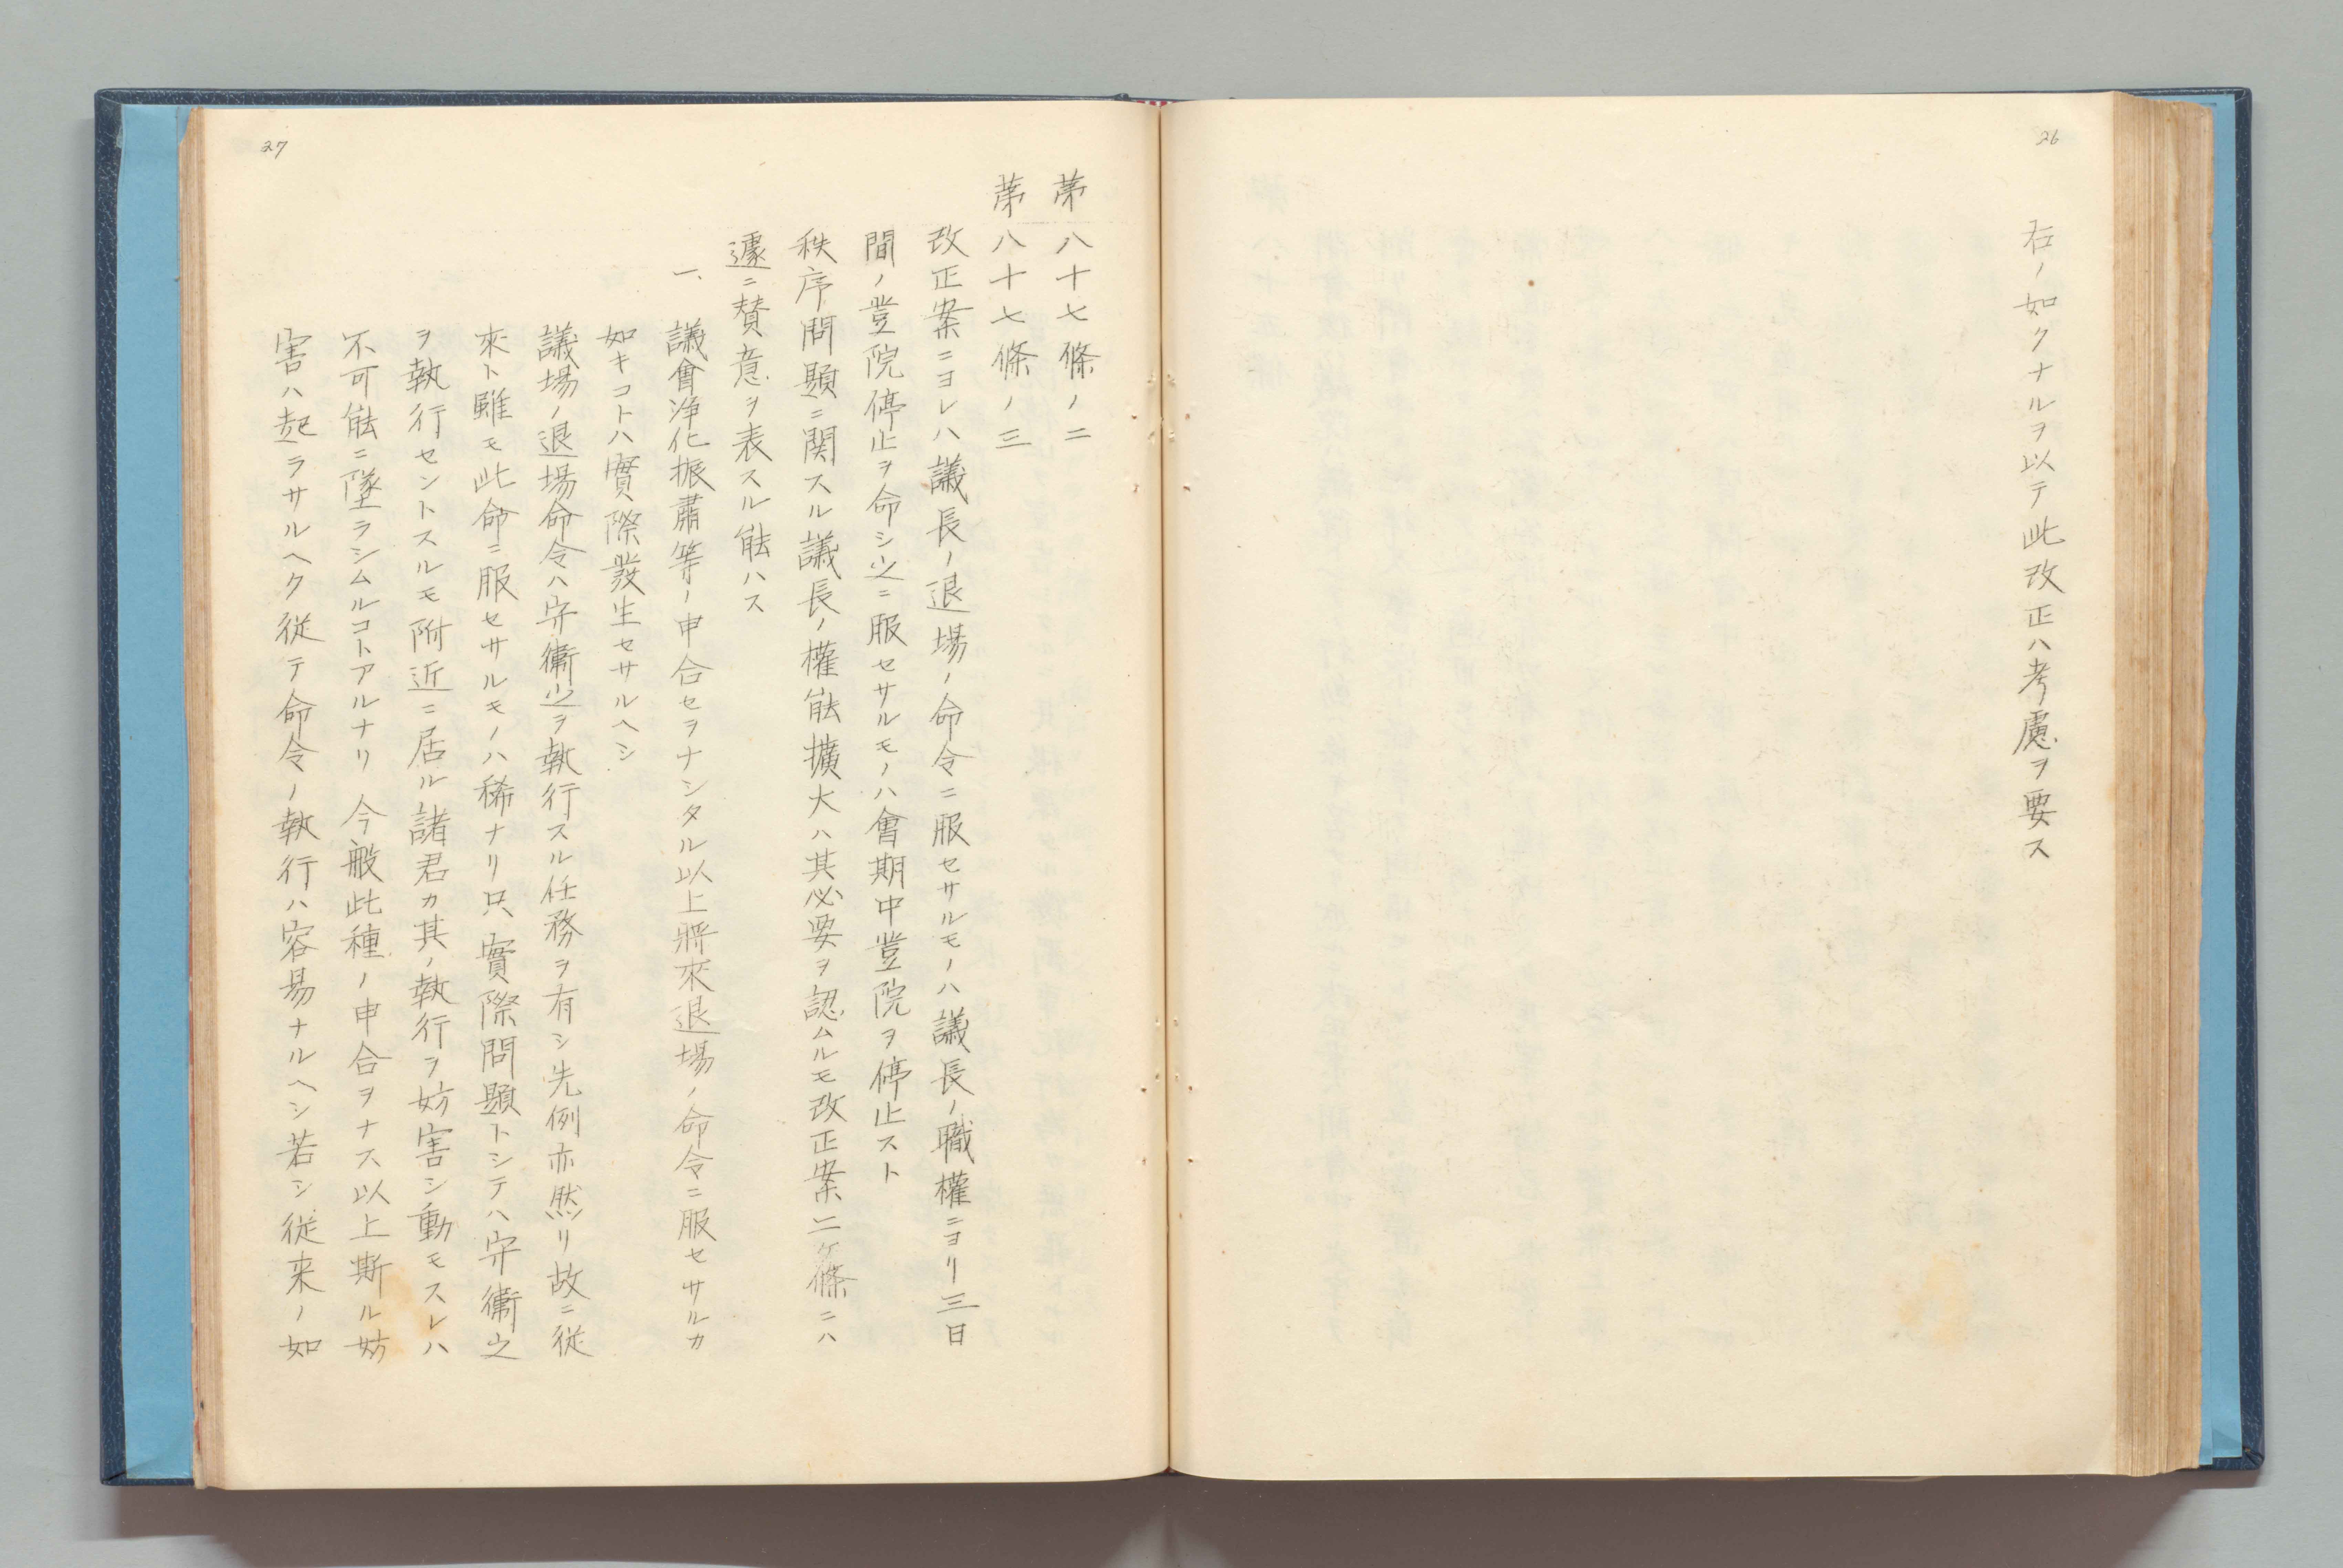 26
右ノ如クナルヲ以テ此改正ハ考慮ヲ要ス
27
第八十七條ノ二
第八十七條ノ三
改正案ニヨレハ議長ノ退場ノ命令ニ服セサルモノハ議長ノ職權ニヨリ三日
間ノ登院停止ヲ命シ之ニ服セサルモノハ會期中登院ヲ停止スト
秩序問題ニ関スル議長ノ權能擴大ハ其必要ヲ認ムルモ改正案二ケ條ニハ
遽ニ賛意ヲ表スル能ハス
一、議會浄化振肅等ノ申合セヲナシタル以上將來退場ノ命令ニ服セサルカ
如キコトハ實際發生セサルヘシ
議場ノ退場命令ハ守衛之ヲ執行スル任務ヲ有シ先例亦然リ故ニ従
來ト雖モ此命ニ服セサルモノハ稀ナリ只實際問題トシテハ守衛之
ヲ執行セントスルモ附近ニ居ル諸君カ其ノ執行ヲ妨害シ動モスレハ
不可能ニ墜ラシムルコトアルナリ今般此種ノ申合ヲナス以上斯ル妨
害ハ起ラサルヘク従テ命令ノ執行ハ容易ナルヘシ若シ従来ノ如